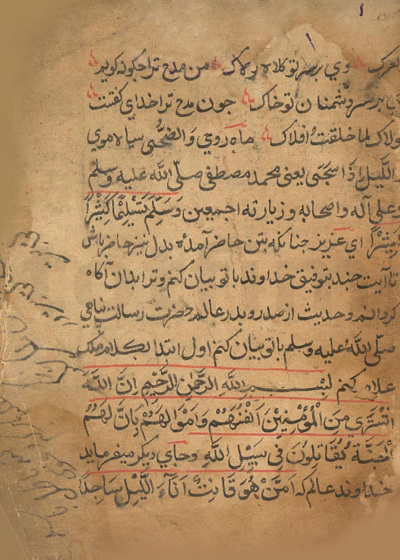 لعمرك وي برسر تو كلاه لولاك من مدح ترا چكونه كويد
اي بر سر دشمنان تو خاك چون مدح ترا خداي كفتت
لولاك لما خلقت افلاك ماه روي والضحى سياه موي
والليل اذا سجى يعني محمد مصطفى صلى الله عليه وسلم
وعلى آله واصحابه وزيارته اجمعين وسلم تسليما كثيرا
كثيرا اي عزيز چنانكه بتن حاضر آمدۀ بدل نيز حاضر باش
تا آيت چند بتوفيق خداوند با تو بيان كنم وترا بدان آكاه
كردانم وحديث از صدر وبدر عالم حضرت رسالت پناهي
صلى الله عليه وسلم با تو بيان كنم اول ابتدا بكلام ملك
علام كنم بسم الله الرحمن الرحيم ان الله
اشترى من المؤمنين انفسهم واموالهم بان لهم
الجنة يقاتلون في سبيل الله وجاي ديكر ميفرمايد
خداوند عالم كه امن هو قانت آناء الليل ساجدا